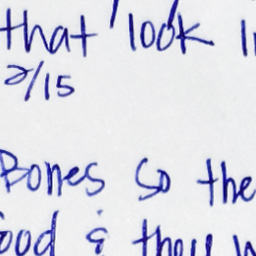 that look
2/15
Bones so the
ood & they